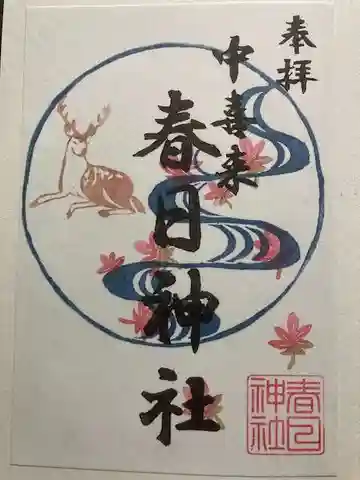 奉拝
中喜来
春日神社
春日
神社